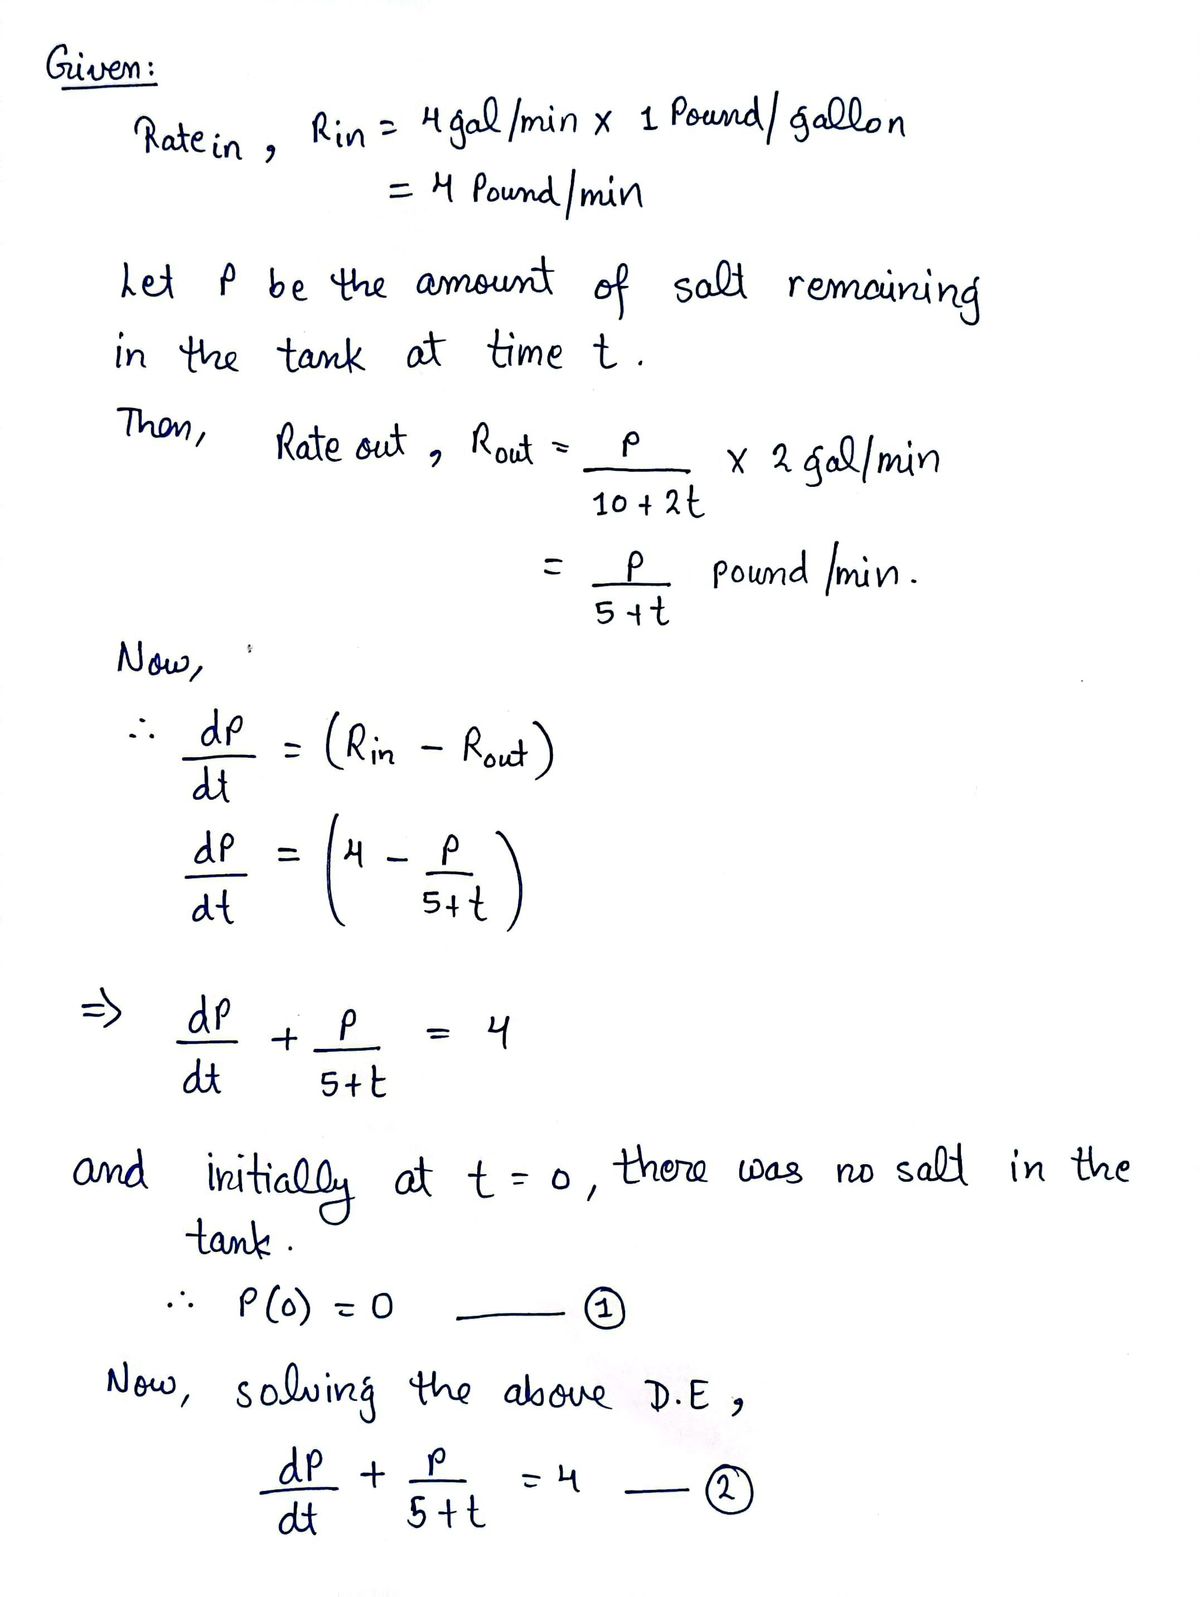 Given:
Rate in , Rin = 4 gal/min x 1 Pound/gallon
= 4 Pound/min
Let P be the amount of salt remaining
in the tank at time t .
Then, Rate out , Rout = P/(10+2t) x 2 gal/min
= P/(5+t) pound /min.
Now,
∴ dP/dt = (Rin - Rout)
dP/dt = (4 - P/(5+t))
=> dP/dt + P/(5+t) = 4
and initially at t = 0, there was no salt in the
tank .
∴ P(0) = 0 —— ①
Now, solving the above D.E ,
dP/dt + P/(5+t) = 4 — ②